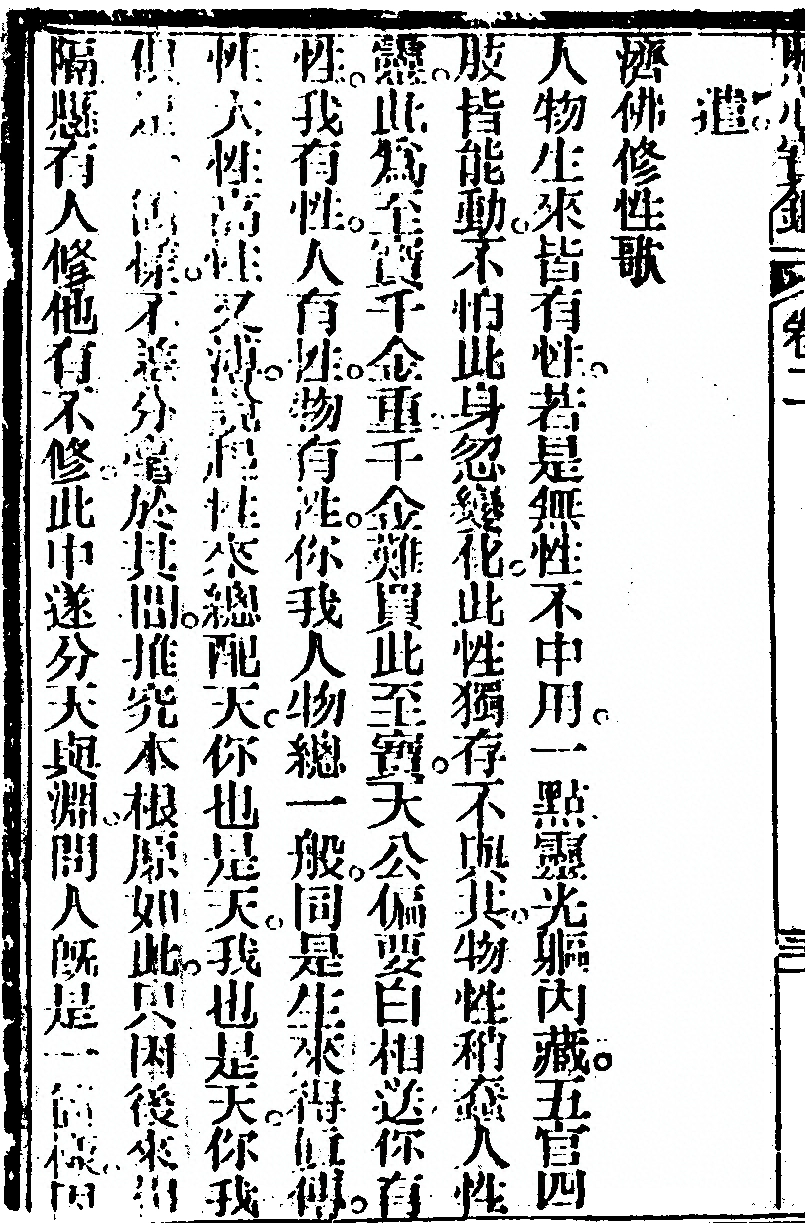 卷二
三
道。
濟佛修性歌
人物生來皆有性。若是無性不中用。一點靈光軀內藏。五官四
肢皆能動。不怕此身忽變化。此性獨存不與共。物性稍蠢人性
靈。此爲至寶千金重。千金難買此至寶。天公偏要白相送。你有
性。我有性。人有性。物有性。你我人物總一般。同是生來得值傳。
性大性高性又溥。說起性來總配天。你也是天。我也是天。你我
但是一個樣。不差分毫於其間。推究本根原如此。只因後來
隔懸。有人修他有不修。此中遂分天與淵。問人旣是一個樣。